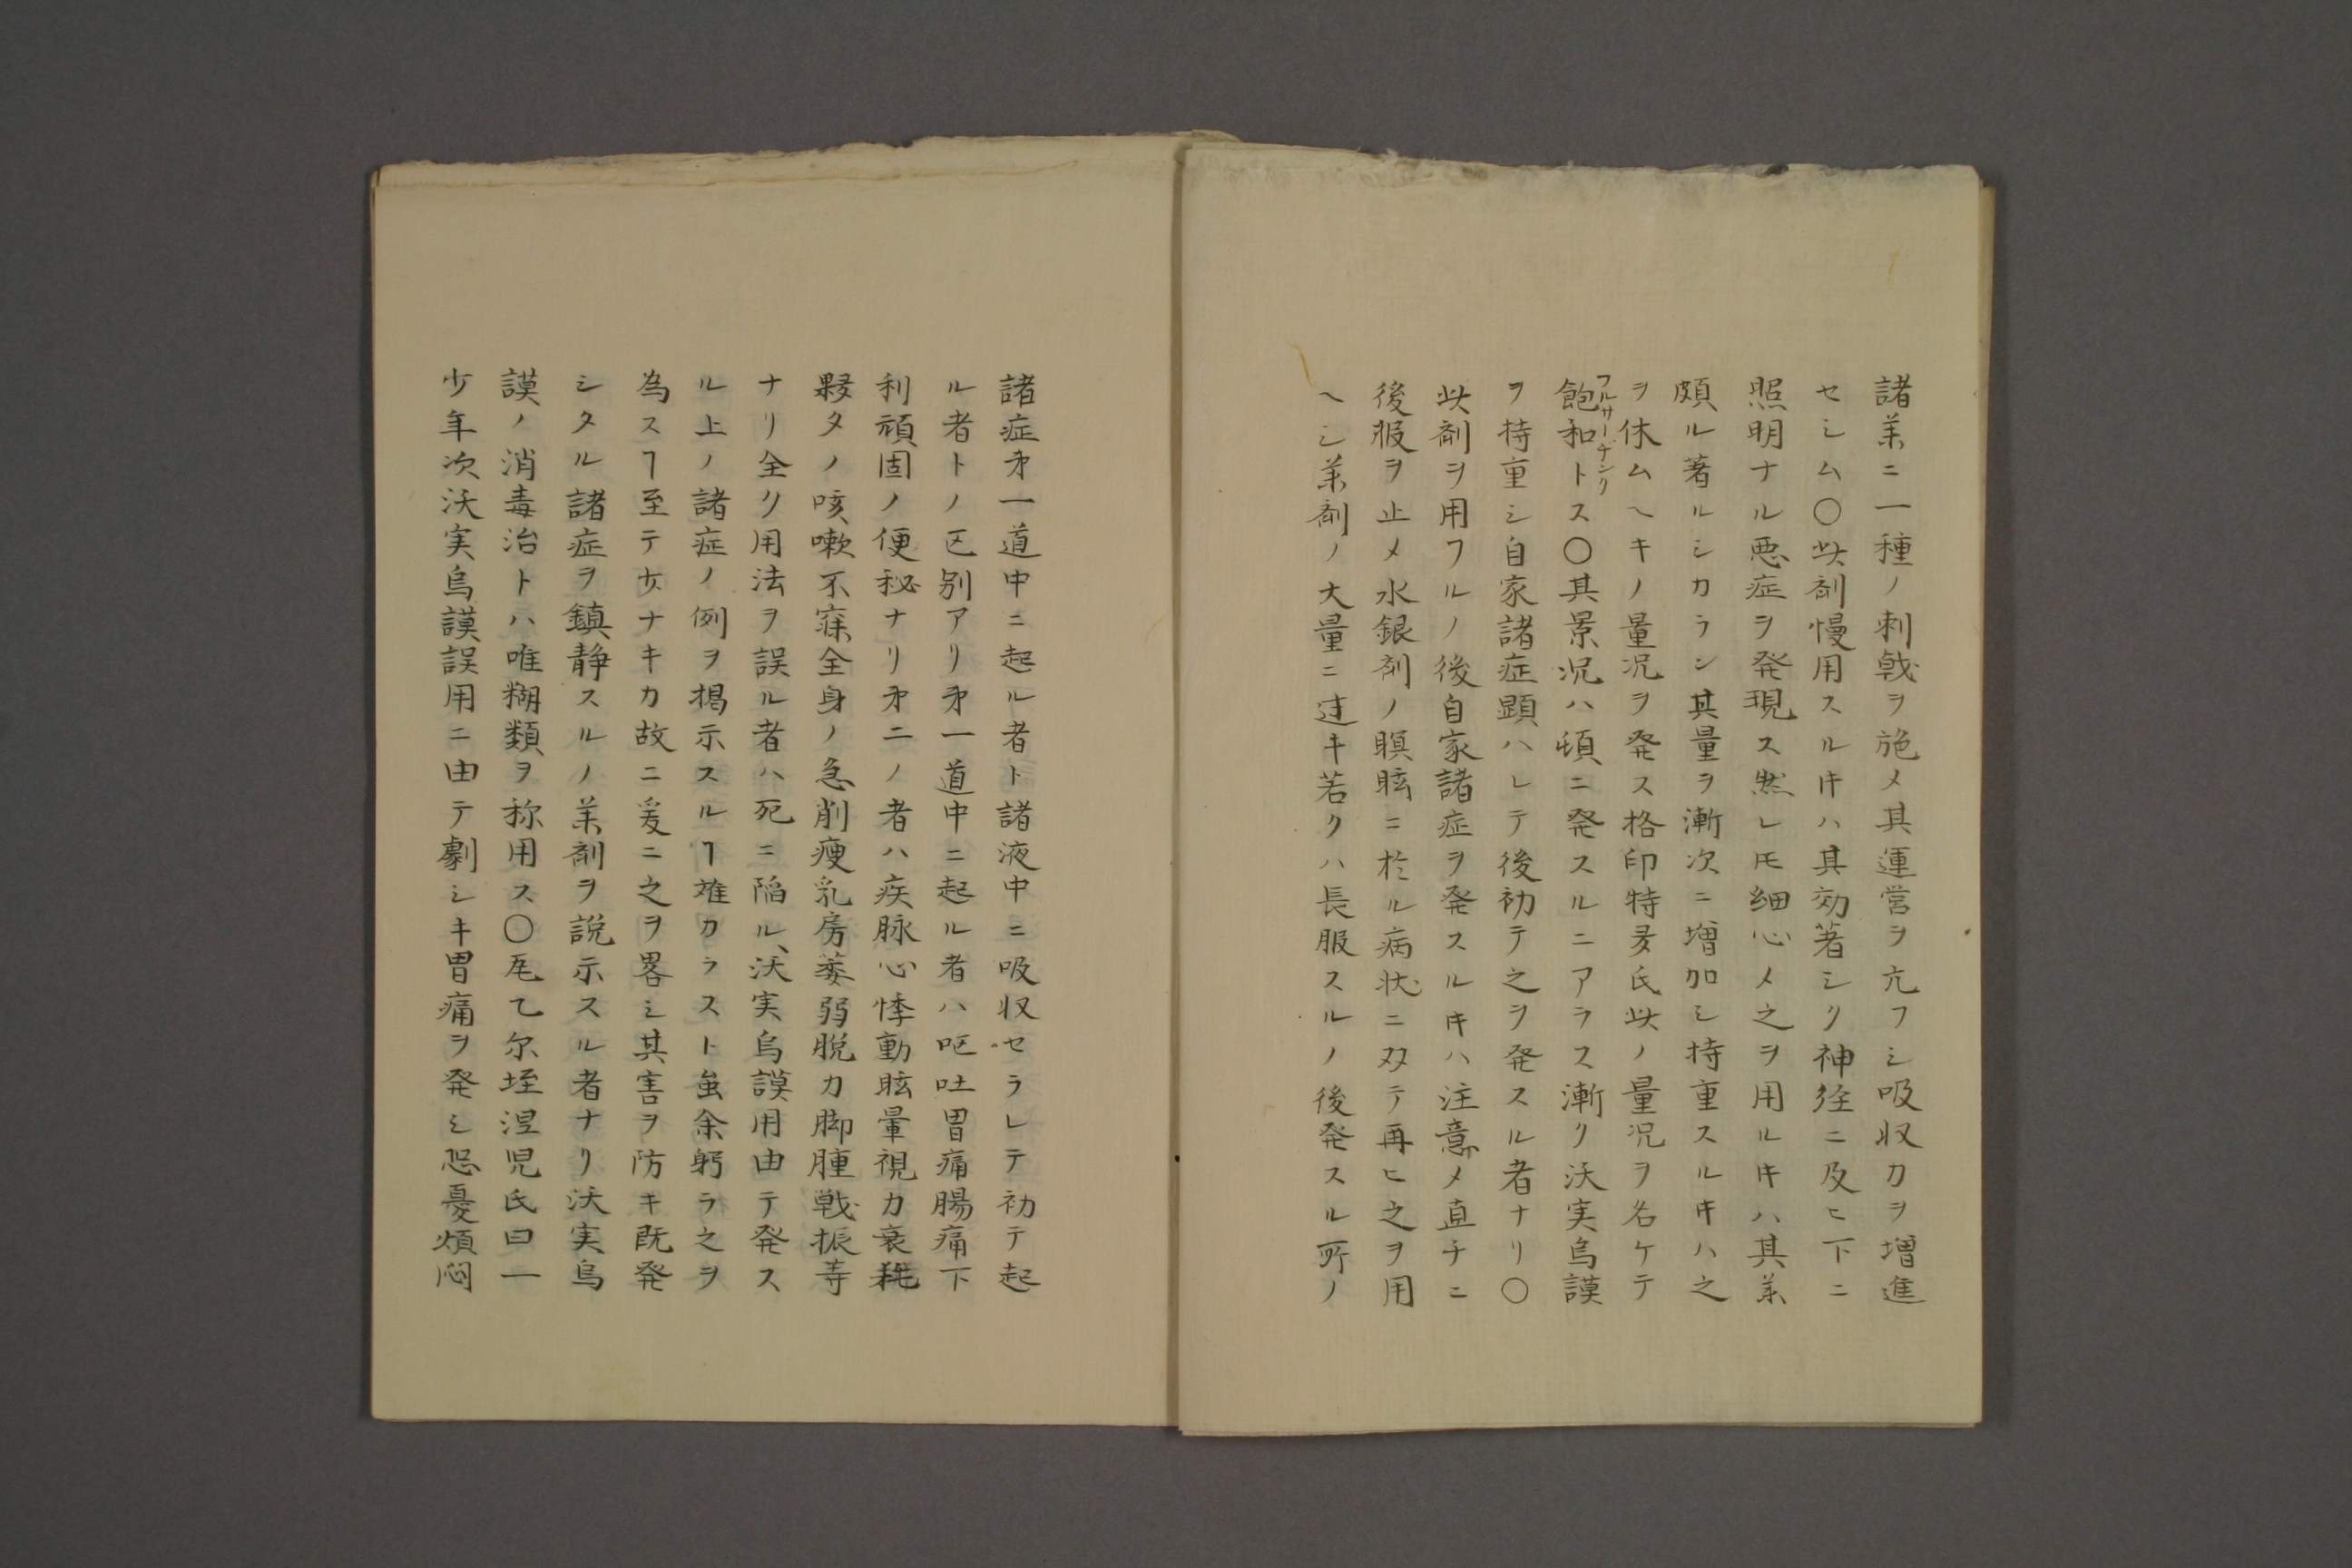 諸薬ニ一種ノ刺戟ヲ施メ其運営ヲ亢フシ吸収力ヲ増進
セシム〇此剤慢用スルキハ其効著シク神経ニ及ヒ下ニ
照明ナル悪症ヲ発現ス然レ𪜈細心メ之ヲ用ルキハ其薬
頗ル著ルシカラン其量ヲ漸次ニ増加シ持重スルキハ之
ヲ休ムヘキノ量況ヲ発ス格印特麦氏此ノ量況ヲ名ケテ
飽和トス〇其景况ハ頓ニ発スルニアラス漸ク沃実烏謨
フルサーヂング
ヲ持重シ自家諸症顕ハレテ後初テ之ヲ発スル者ナリ〇
此剤ヲ用フルノ後自家諸症ヲ発スルキハ注意メ直チニ
後服ヲ止メ水銀剤ノ瞑眩ニ於ル病状ニ双テ再ヒ之ヲ用
ヘシ薬剤ノ大量ニ過キ若クハ長服スルノ後発スル所ノ
諸症㐧一道中ニ起ル者ト諸液中ニ吸収セラレテ初テ起
ル者トノ区別アリ㐧一道中ニ起ル者ハ呕吐胃痛腸痛下
利頑固ノ便秘ナリ㐧二ノ者ハ疾脉心悸動眩暈視力衰耗
夥タノ咳嗽不寐全身ノ急削痩乳房萎弱脱力脚腫戦振等
ナリ全ク用法ヲ誤ル者ハ死ニ陥ル、沃実烏謨用由テ発ス
ル上ノ諸症ノ例ヲ掲示スルヿ難カラスト虽余躬ラ之ヲ
為スヿ至テ少ナキカ故ニ爰ニ之ヲ畧シ其害ヲ防キ既発
シタル諸症ヲ鎮静スルノ薬剤ヲ説示スル者ナリ沃実烏
謨ノ消毒治トハ唯糊類ヲ称用ス〇厖乙尓垤涅児氏曰一
少年次沃実烏謨誤用ニ由テ劇シキ胃痛ヲ発シ恐憂煩悶